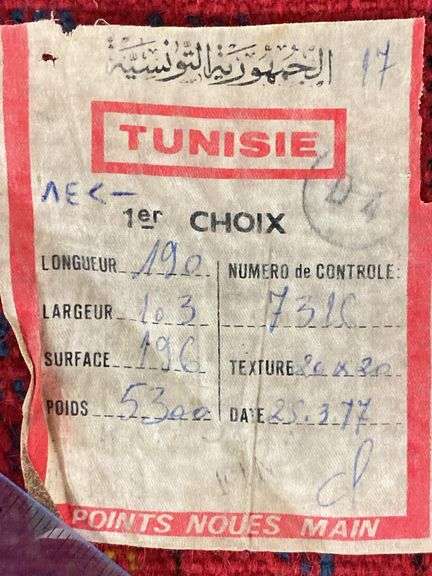 الجمهورية التونسية 17
TUNISIE
D 4
1er CHOIX
LONGUEUR 190
NUMERO de CONTROLE:
LARGEUR 103
SURFACE 196
TEXTURE 20x20
POIDS 5300
DATE 25.3.77
POINTS NOUES MAIN